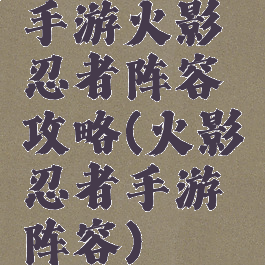 手游火影
忍者阵容
攻略(火影
忍者手游
阵容)